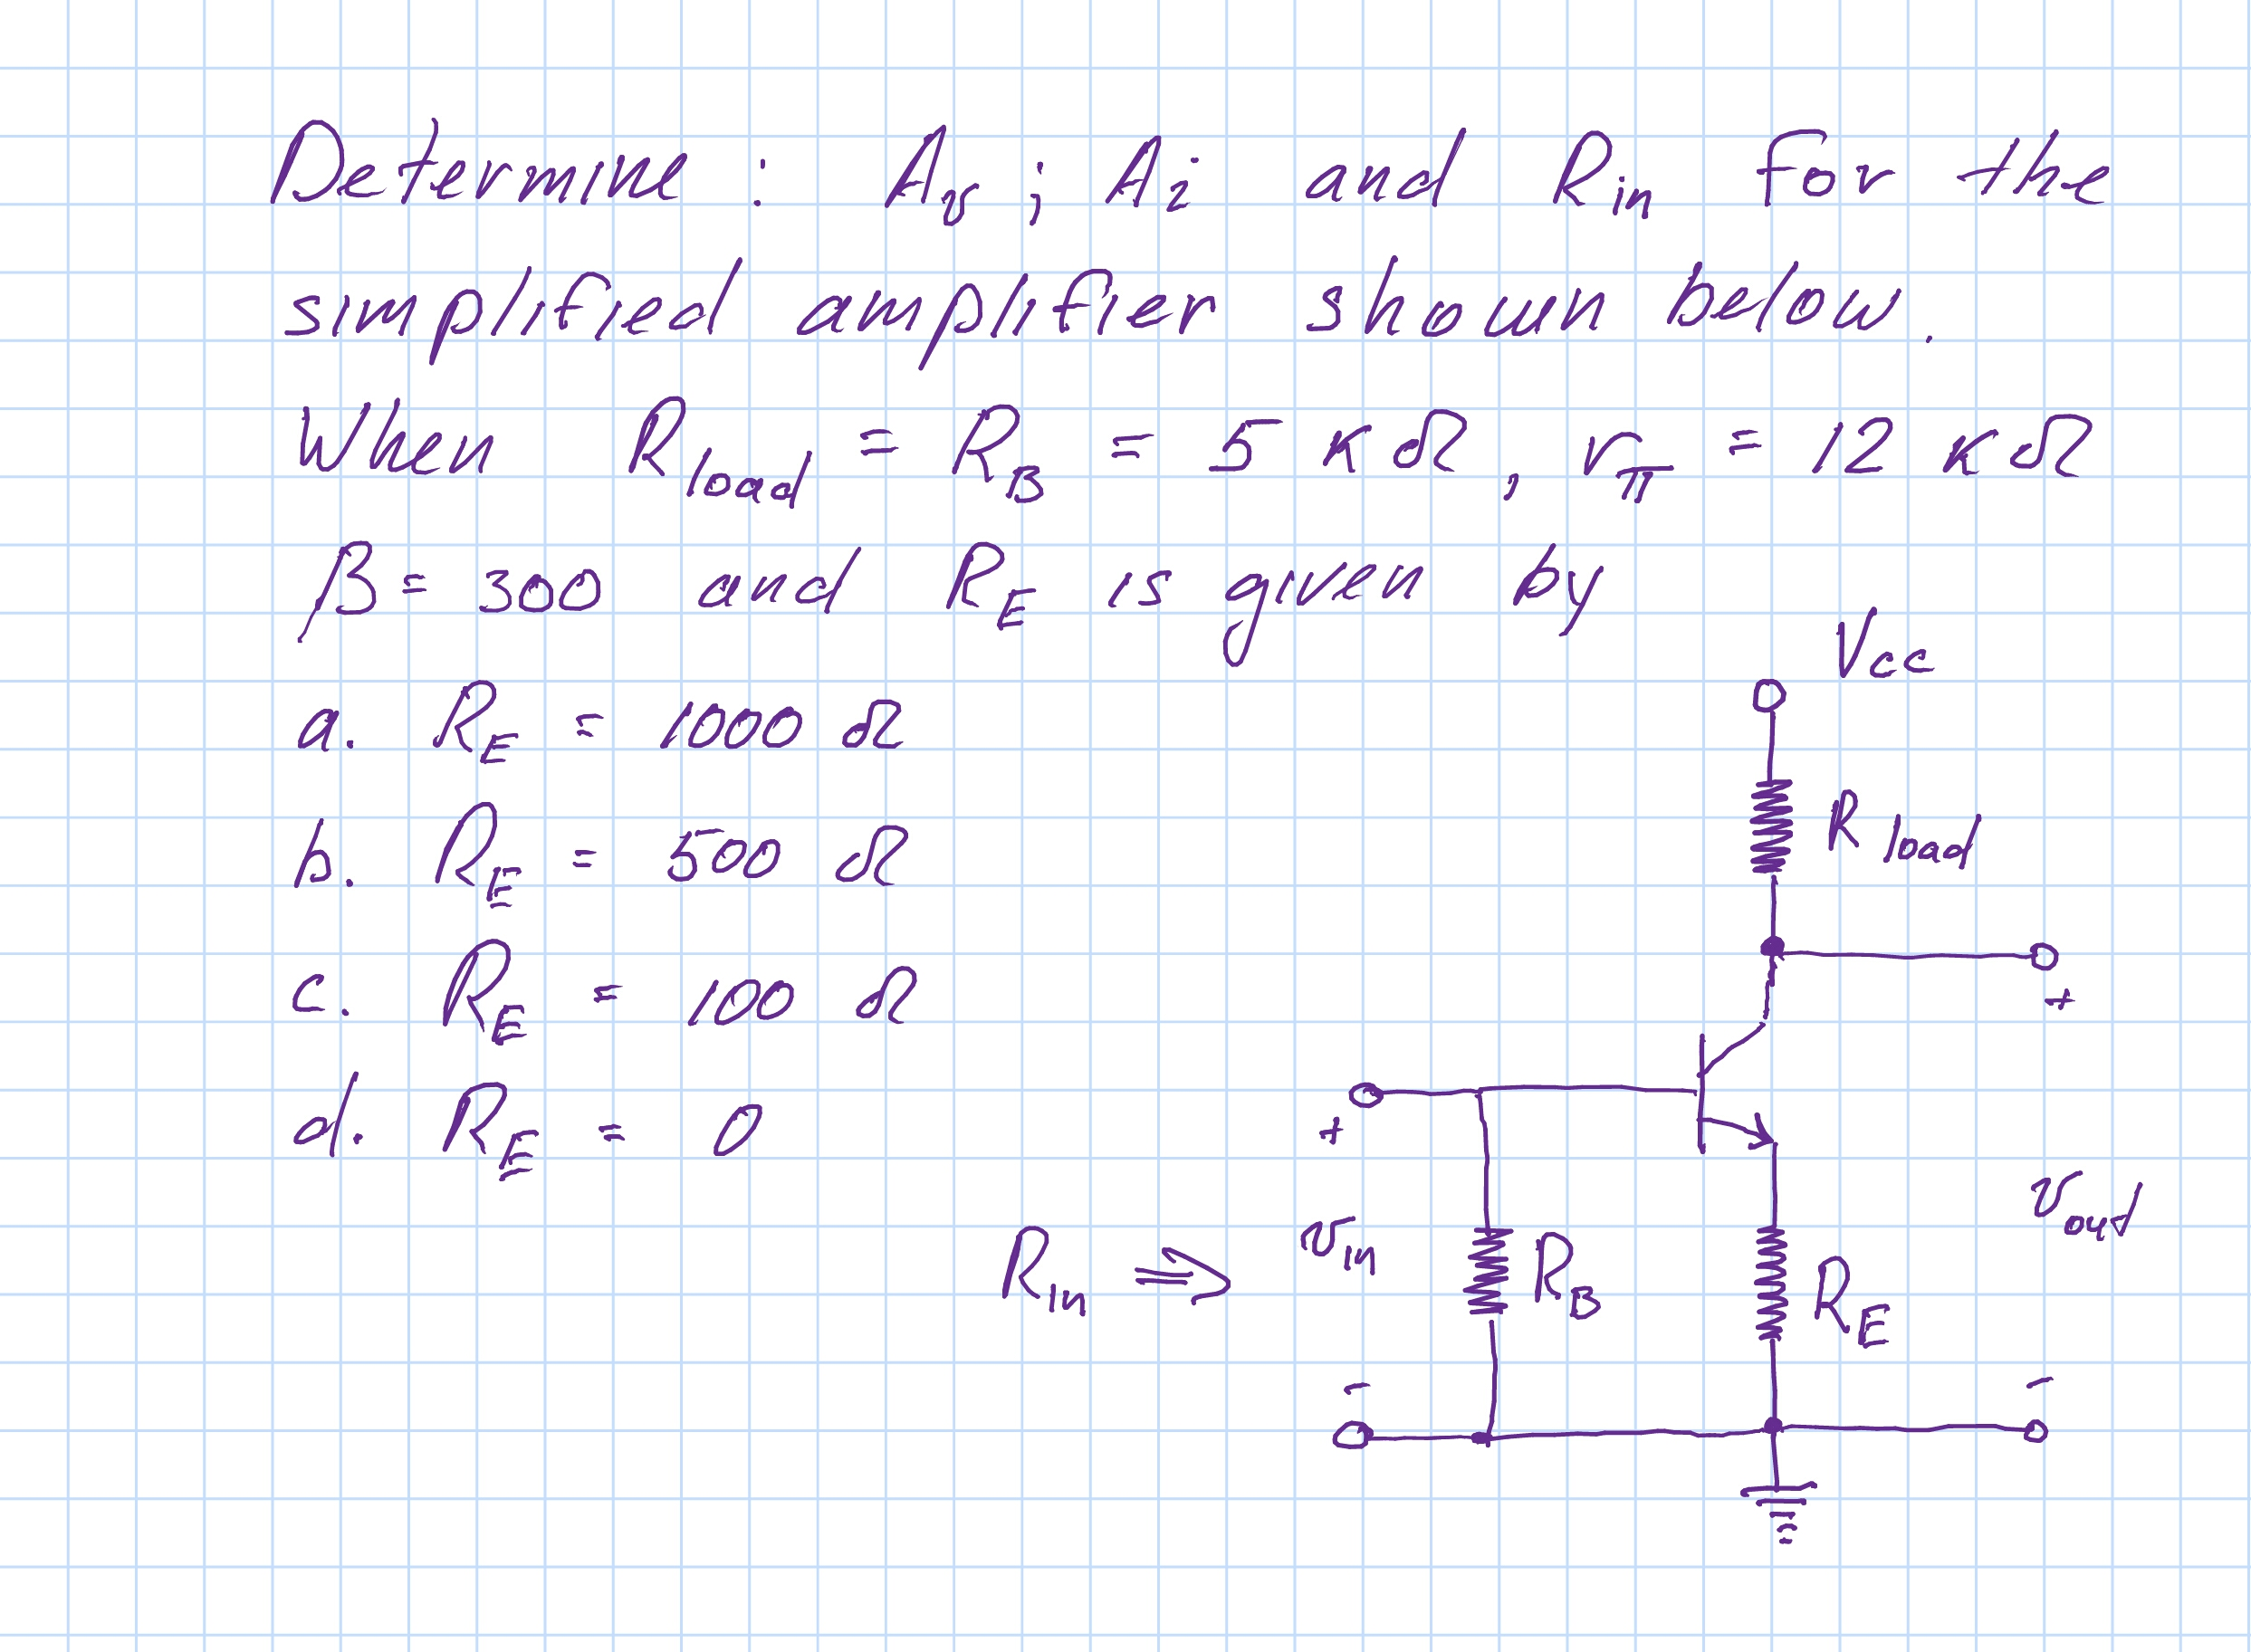 Determine: Av; Ai and Rin for the
simplified amplifier shown below.
When Rload = RB = 5 kΩ, rπ = 12 kΩ
β = 300 and RE is given by
a. RE = 1000 Ω
b. RE = 500 Ω
c. RE = 100 Ω
d. RE = 0
Vcc
Rload
+
+
Rin ⇒
vin
RB
RE
vout
-
-